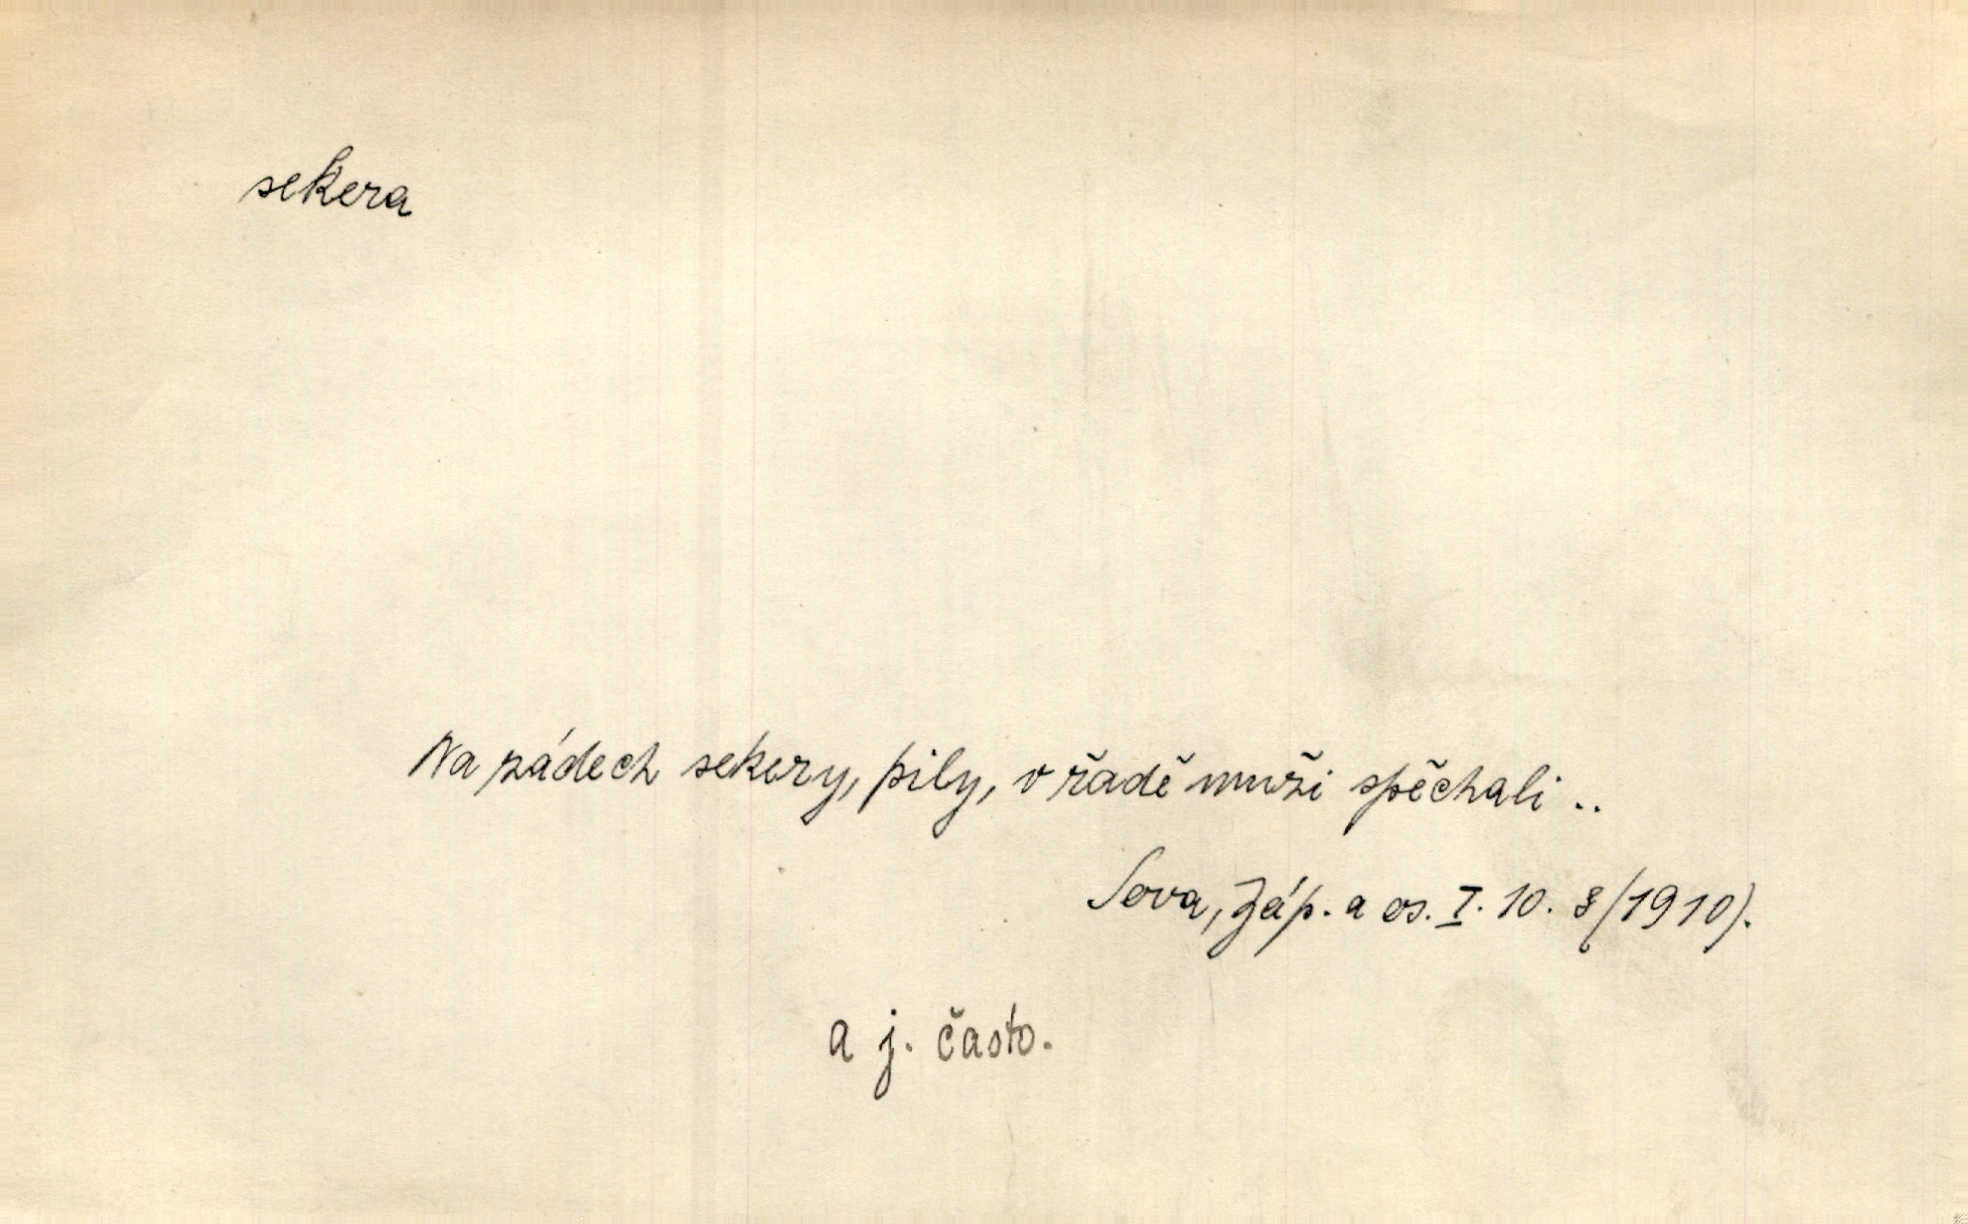 sekera
Na zádech sekery, pily, v řadě muži spěchali ..
Sova, Záp. a os. I. 10. 8 (1910).
a j. často.